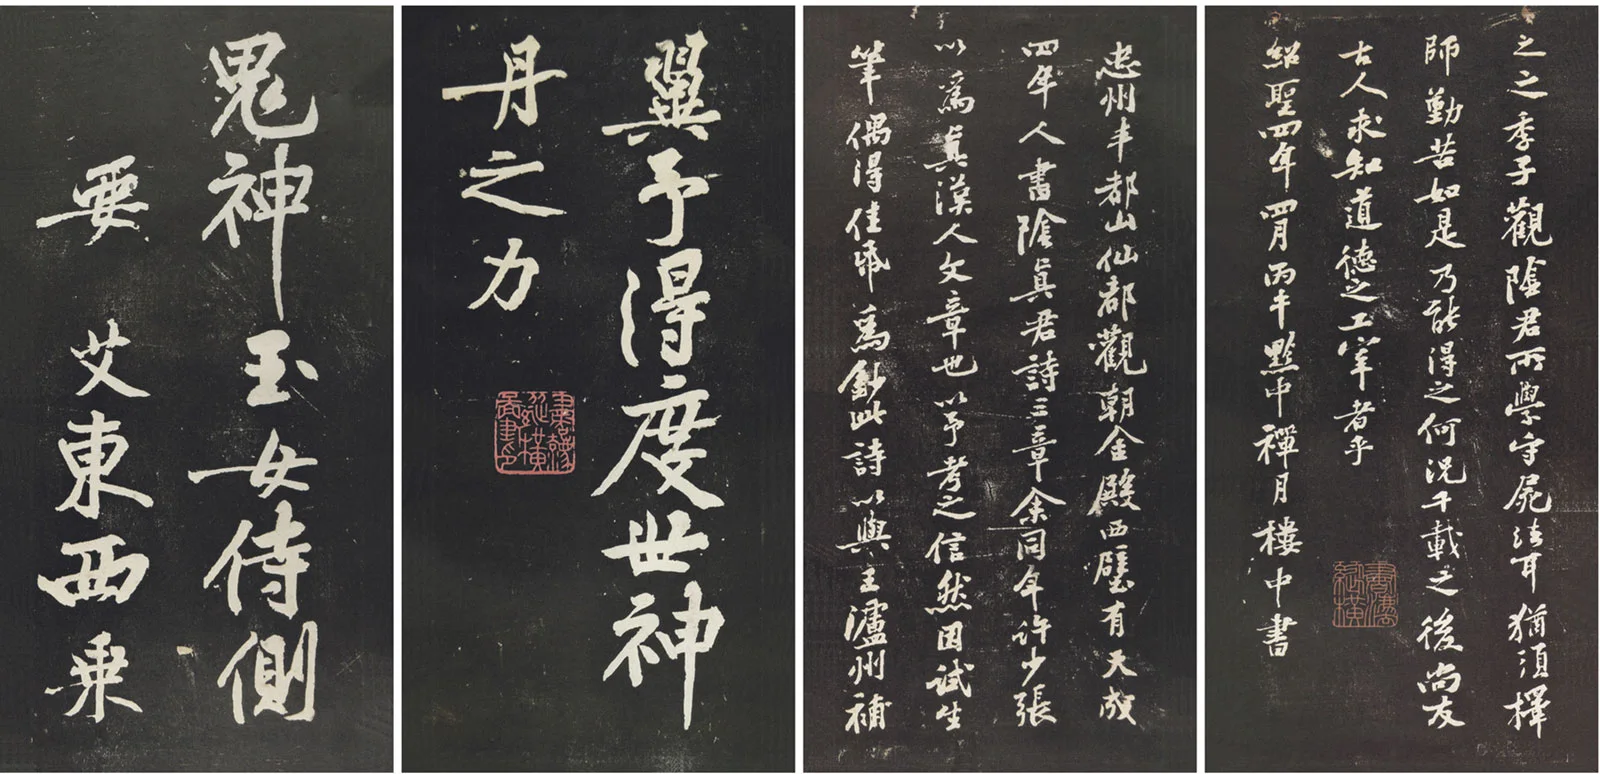 鬼神玉女侍側
要艾東西乘
翼予得度世神
丹之力
忠州丰都山仙都觀朝金殿西壁有天成
四年人書陰真君詩三章余同年許少張
以為真漢人文章也以予考之信然因試生
筆偶得佳紙為鈔此詩以與王瀘州補
之之季子觀陰君所學守屍法耳猶須擇
師勤苦如是乃能得之何況千載之後尚友
古人求知道德之工宰者乎
紹聖四年四月丙午黔中禪月樓中書